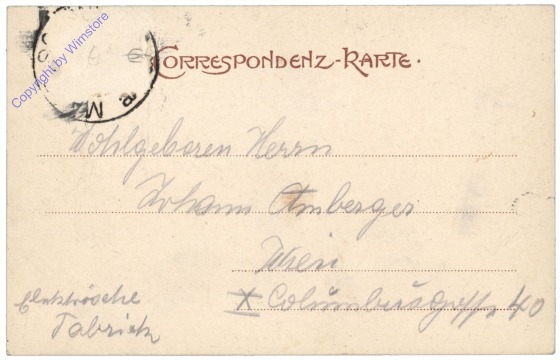 Copyright by Wimstore
CORRESPONDENZ-KARTE.
Wohlgeboren Herrn
Johann Amberger
Wien
X Columbusgasse 40
Elektrische
Fabrick